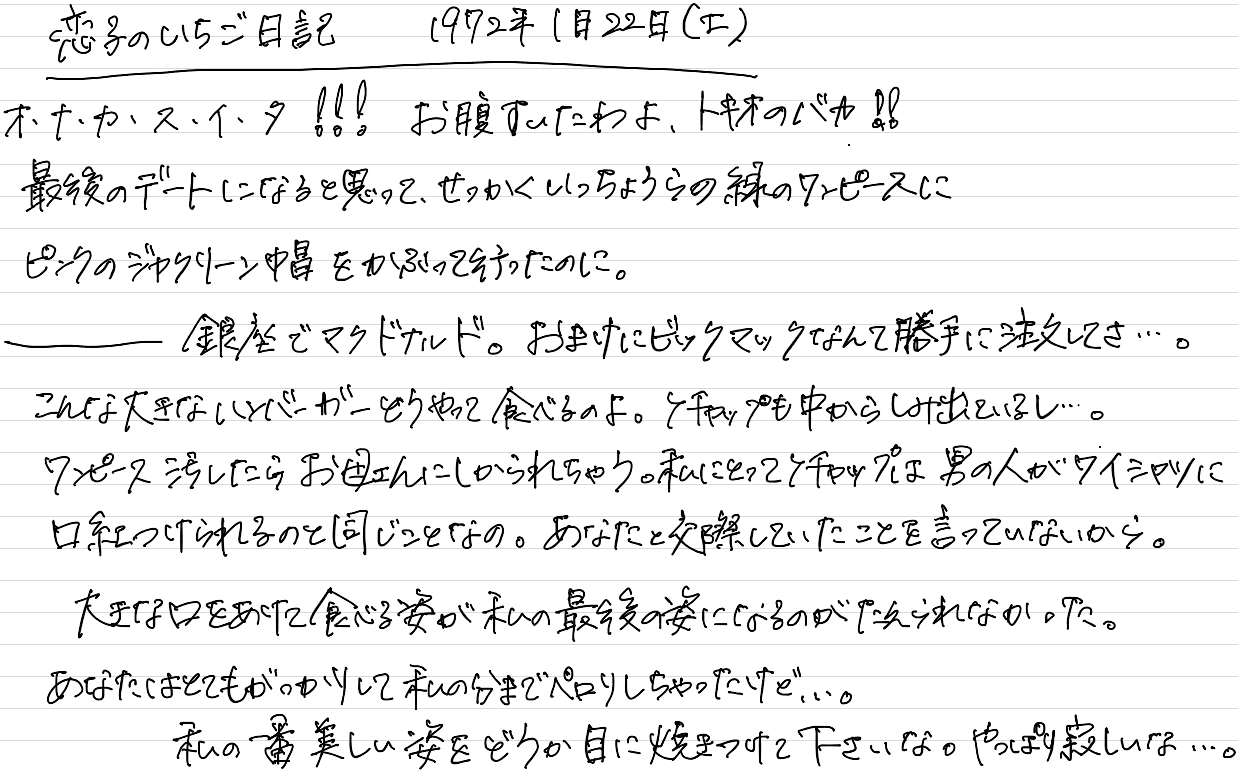 恋子のいちご日記　1972年1月22日(土)
オ・ナ・カ・ス・イ・タ!!!　お腹すいたわよ、トキオのバカ!!
最後のデートになると思って、せっかくいっちょうらの緑のワンピースに
ピンクのジャクリーン帽をかぶって行ったのに。
―――銀座でマクドナルド。おまけにビックマックなんて勝手に注文してさ…。
こんな大きなハンバーガーどうやって食べるのよ。ケチャップも中からしみ出ているし…。
ワンピース汚したらお母さんにしかられちゃう。私にとってケチャップは男の人がワイシャツに
口紅つけられるのと同じことなの。あなたと交際していたことを言っていないから。
大きな口をあけて食べる姿が私の最後の姿になるのがたえられなかった。
あなたはとてもがっかりして私の分までペロリしちゃったけど…。
私の一番美しい姿をどうか目に焼きつけて下さいな。やっぱり寂しいな…。